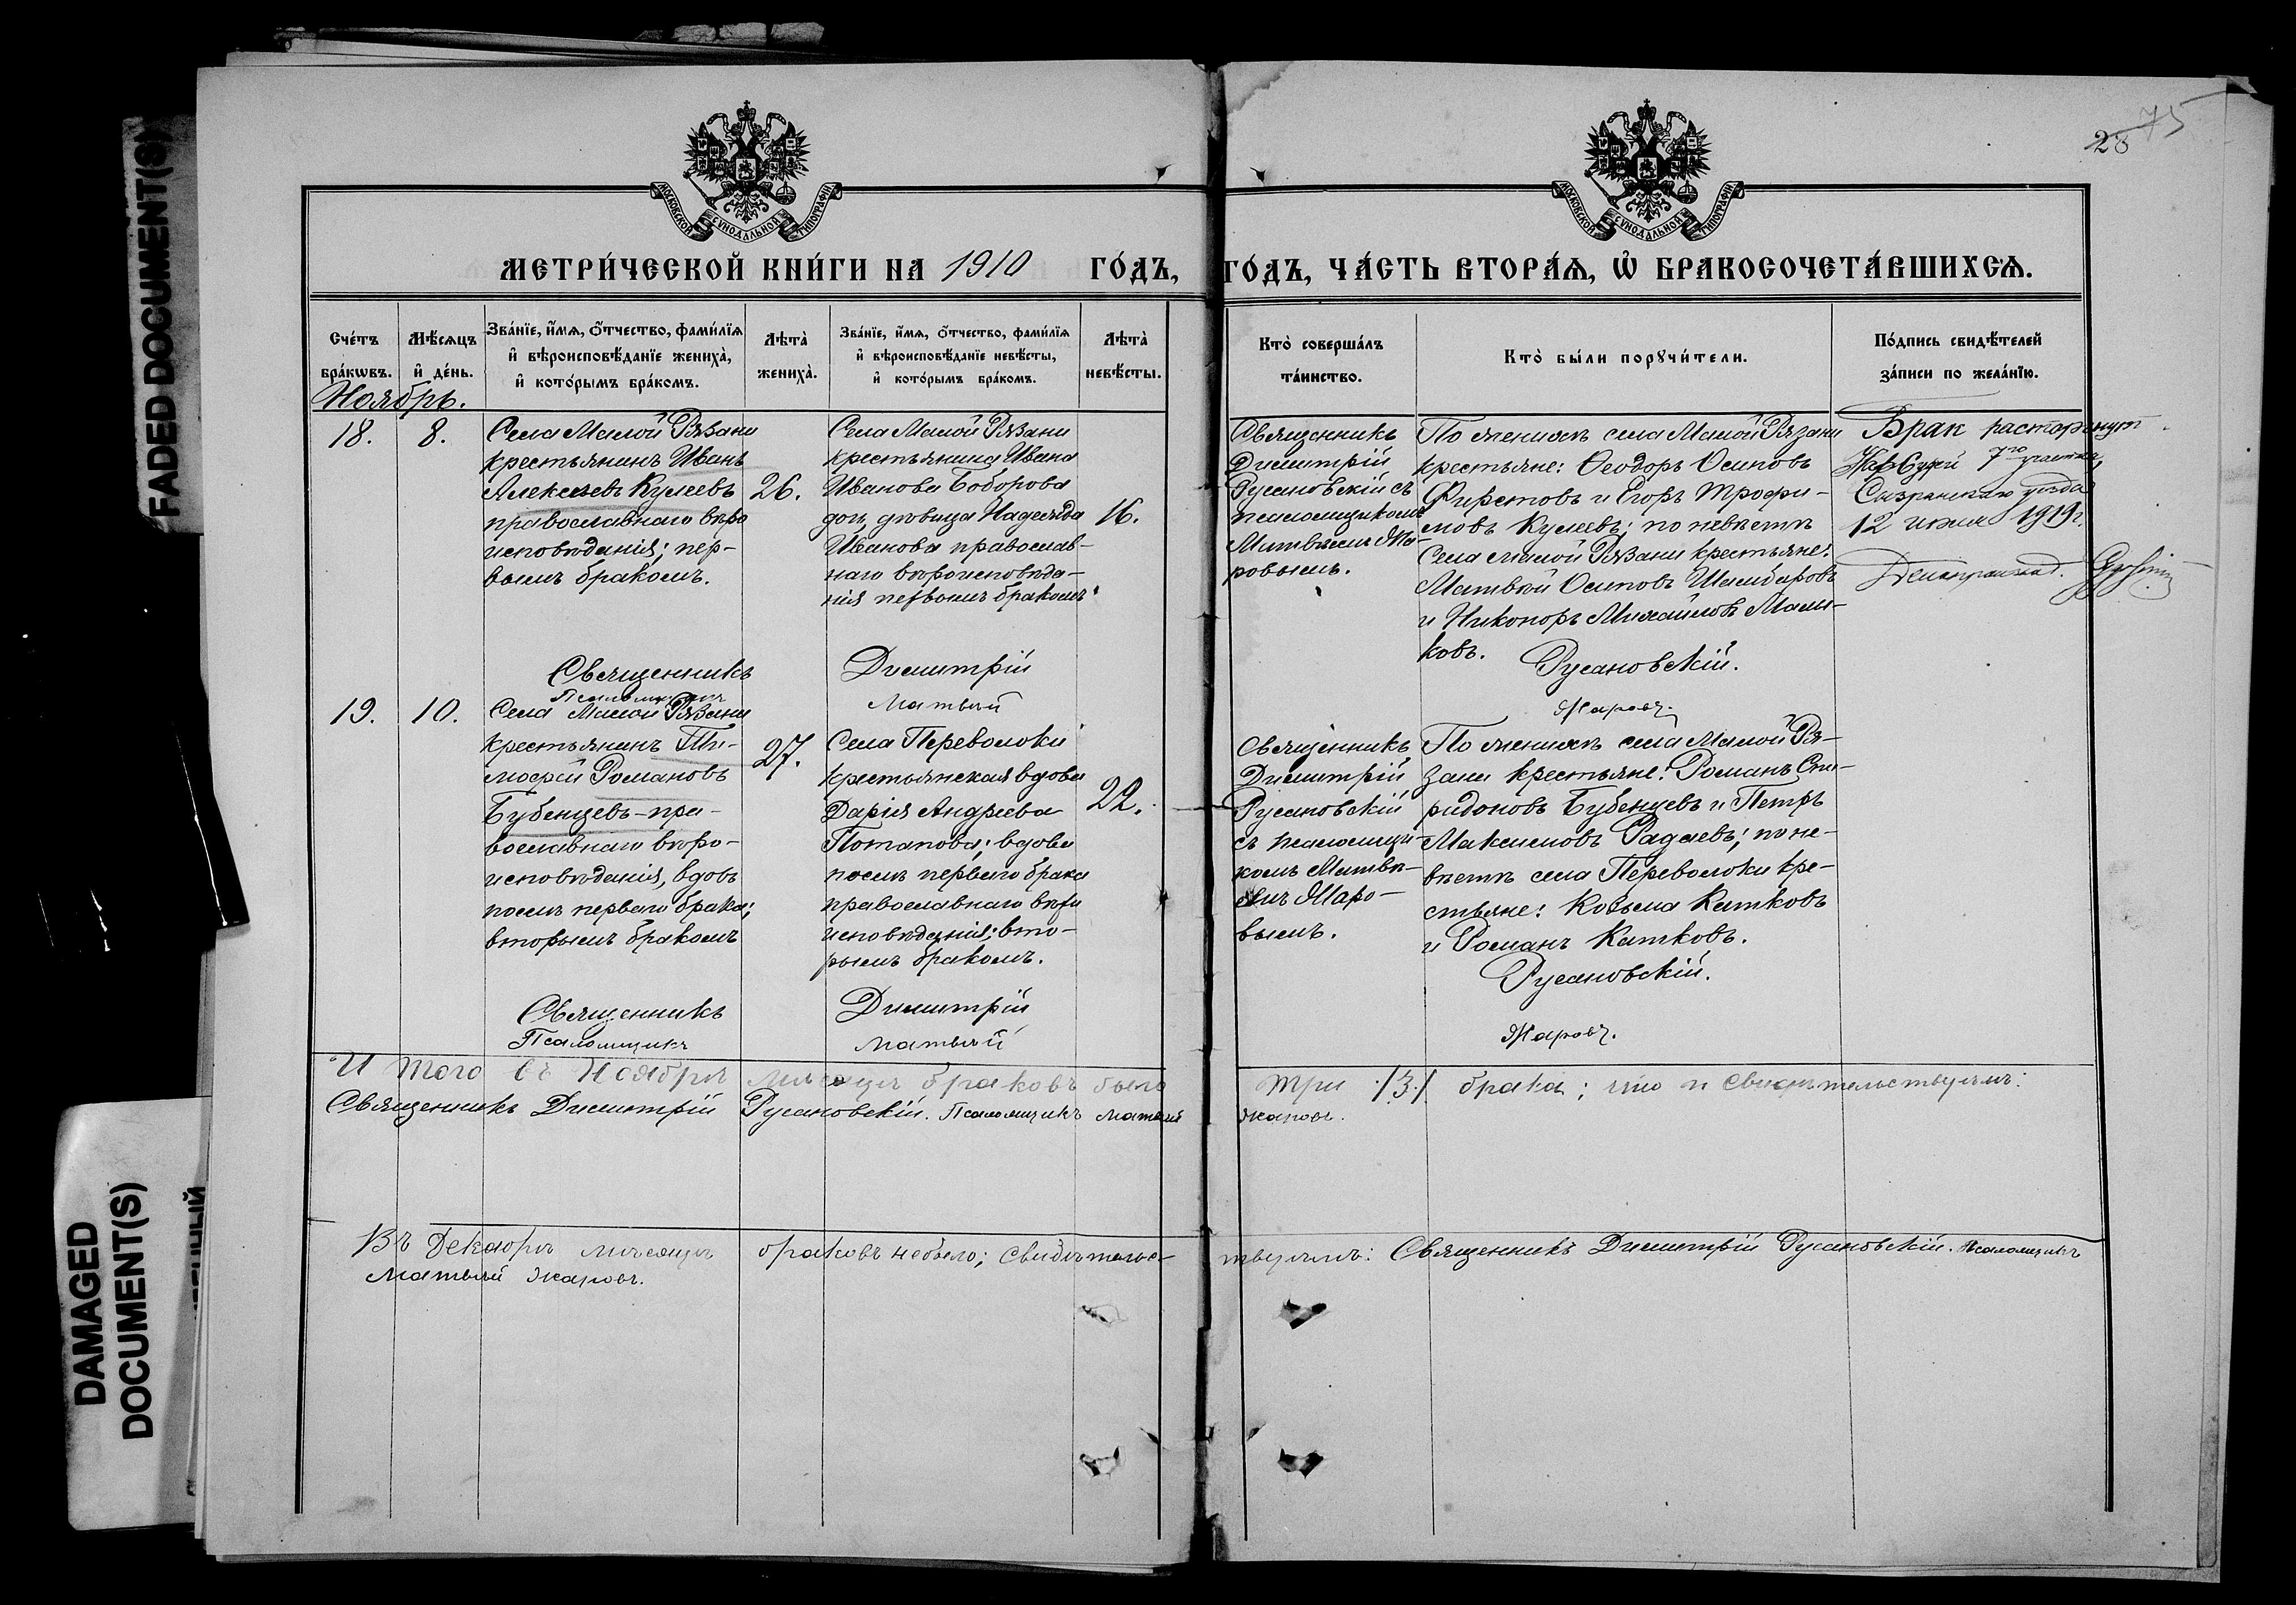 FADED DOCUMENT(S)
DAMAGED
DOCUMENT(S)
28 75
МОСКОВСКОЙ СѴНОДАЛЬНОЙ ТИПОГРАФІИ
МОСКОВСКОЙ СѴНОДАЛЬНОЙ ТИПОГРАФІИ
МЕТРИ́ЧЕСКОЙ КНИ́ГИ НА 1910 ГО́ДЪ,
ГО́ДЪ, ЧА́СТЬ ВТОРА́Ѧ, Ѽ БРАКОСОЧЕТА́ВШИХСѦ.
Сче́тъ
бра́кѡвъ.
Мѣ́сѧцъ
и҆ де́нь.
Зва́нїе, и҆́мѧ, ѻ҆́тчество, фами́лїѧ
и҆ вѣроисповѣ́данїе жениха̀,
и҆ кото́рымъ бра́комъ.
Лѣта̀
жениха̀.
Зва́нїе, и҆́мѧ, ѻ҆́тчество, фами́лїѧ
и҆ вѣроисповѣ́данїе невѣ́сты,
и҆ кото́рымъ бра́комъ.
Лѣта̀
невѣ́сты.
Кто̀ соверша́лъ
та́инство.
Кто̀ бы́ли порꙋчи́тели.
По́дпись свидѣ́телей
за́писи по жела́нїю.
Ноябрь.
18.
8.
Села Малой Рязани
крестьянинъ Иванъ
Алексѣевъ Кулеевъ
православнаго вѣро
исповѣданія; пер-
вымъ бракомъ.
26.
Села Малой Рязани
крестьянина Ивана
Иванова Боборова
дочь, дѣвица Надежда
Иванова православ-
наго вѣроисповѣда-
нія первымъ бракомъ.
16.
Священникъ
Димитрій
Русановскій съ
псаломщикомъ
Матвѣемъ Жа-
ровымъ.
По женихѣ села Малой Рязани
крестьяне: Ѳеодоръ Осиповъ
Фирстовъ и Егоръ Трофи-
мовъ Кулеевъ; по невѣстѣ
Села Малой Рязани крестьяне:
Матвѣй Осиповъ Шамбаровъ
и Никоноръ Михайловъ Мали-
ковъ.
Брак расторгнут
Нар Судом 7го участка,
Сызранскаго уезда
12 июня 1919 г.
Священникъ Димитрій Русановскій.
Псаломщикъ Матвѣй Жаровъ.
19.
10.
Села Малой Рязани
крестьянинъ Ти-
моѳей Романовъ
Бубенцевъ-пра-
вославнаго вѣро-
исповѣданія, вдовъ
послѣ перваго брака;
вторымъ бракомъ
27.
Села Переволоки
крестьянская вдова
Дарія Андреева
Потапова; вдова
послѣ перваго брака
православнаго вѣро
исповѣданія; вто-
рымъ бракомъ.
22.
Священникъ
Димитрій
Русановскій
съ псаломщи-
комъ Матвѣ-
емъ Жаро-
вымъ.
По женихѣ села Малой Ря-
зани крестьяне: Романъ Спи-
ридоновъ Бубенцевъ и Петръ
Максимовъ Радаевъ; по не-
вѣстѣ села Переволоки кре-
стьяне: Козьма Катковъ
и Романъ Катковъ.
Священникъ Димитрій Русановскій.
Псаломщикъ Матвѣй Жаровъ.
И того въ Ноябрѣ мѣсяцѣ браковъ было три /3/ брака; что и свидѣтельствуемъ:
Священникъ Димитрій Русановскій. Псаломщикъ Матвѣй Жаровъ.
Въ Декабрѣ мѣсяцѣ браковъ небыло; свидѣтельс-твуемъ: Священникъ Димитрій Русановскій. Псаломщикъ
Матвѣй Жаровъ.